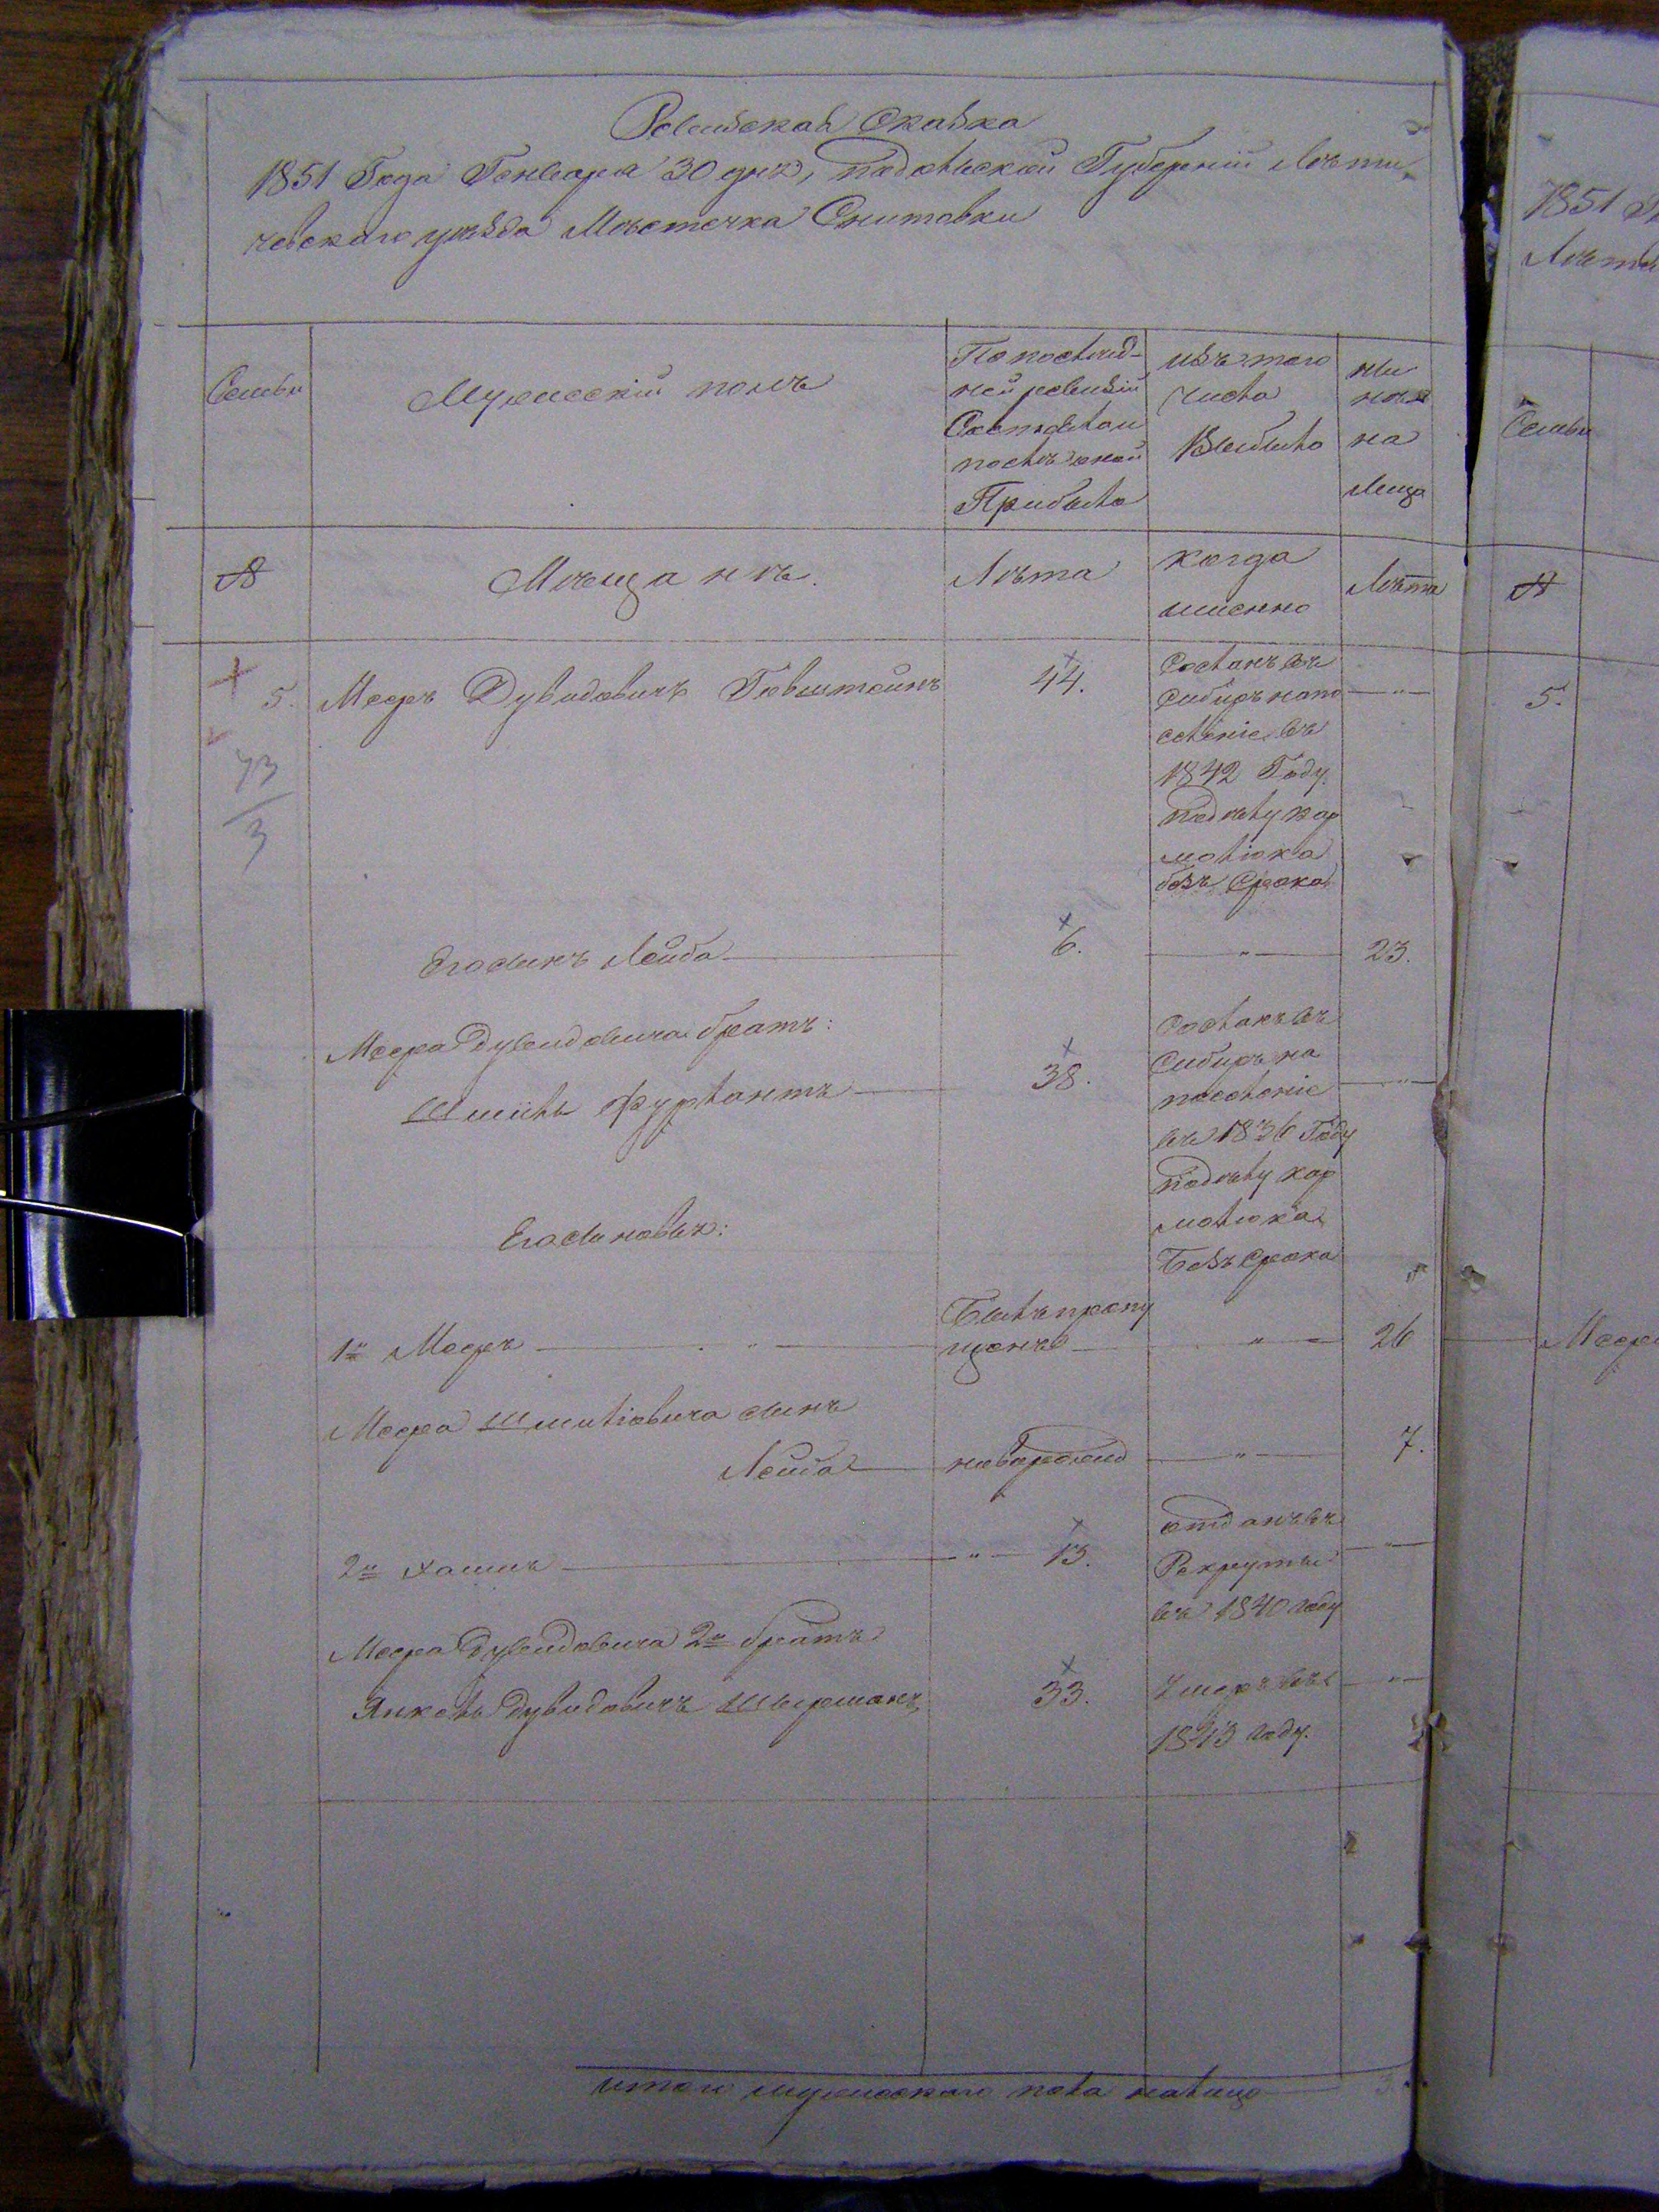 Ревизская Сказка
1851 Года Генваря 30 дня, Подольской Губернии Лѣти
чевского уѣзда Мѣстечка Снитовки
Семьи
Мужеский полъ
По послѣд-
ней ревизии
Состояло и
послѣ оной
Прибыло
изъ того
числа
Выбыло
ны
нѣ
на
лицо
№
Мѣщанѣ.
Лѣта
когда
именно
Лѣта
5. Мееръ Дувидовичъ
44.
Сосланъ въ
Сибирь на по
селение въ
1842 Году
по дѣлу кар
мелюка
безъ Срока
73
3
Его сынъ Лейба
6.
23.
Меера Дувидовича братъ:
Шмиль
38.
Сосланъ въ
Сибирь на
поселение
въ 1836 Году
по дѣлу кар
мелюка
Безъ Срока
Его сыновья:
1й Мееръ
Былъ пропу
щенъ
26
Меера Шмилиовича сынъ
Лейба
новорожд
7.
2й Хаимъ
13.
отданъ въ
Рекруты
въ 1840 году
Меера Дувидовича 2й братъ
Янкель Дувидовичъ
33.
Умеръ въ
1843 году.
итого мужеского пола налицо 3.
1851
Лѣти
Семьи
№
5.
Меера